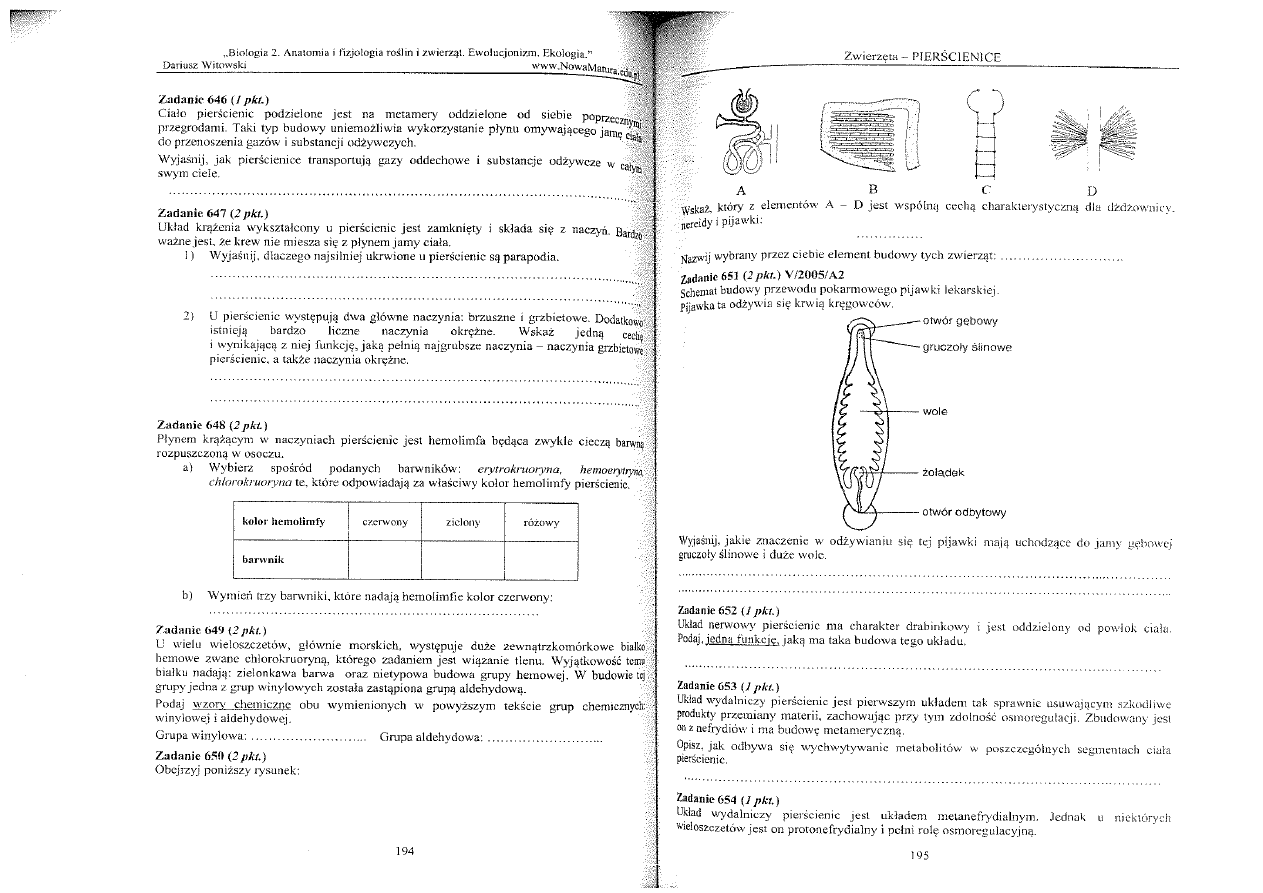 „Biologia 2. Anatomia i fizjologia roślin i zwierząt. Ewolucjonizm. Ekologia.”
Dariusz Witowski www.NowaMatura.cda.pl
Zadanie 646 (1 pkt.)
Ciało pierścienic podzielone jest na metamery oddzielone od siebie poprzecznymi
przegrodami. Taki typ budowy uniemożliwia wykorzystanie płynu omywającego jamę ciała
do przenoszenia gazów i substancji odżywczych.
Wyjaśnij, jak pierścienice transportują gazy oddechowe i substancje odżywcze w całym
swym ciele.
Zadanie 647 (2 pkt.)
Układ krążenia wykształcony u pierścienic jest zamknięty i składa się z naczyń. Bardzo
ważne jest, że krew nie miesza się z płynem jamy ciała.
1) Wyjaśnij, dlaczego najsilniej ukrwione u pierścienic są parapodia.
2) U pierścienic występują dwa główne naczynia: brzuszne i grzbietowe. Dodatkowo
istnieją bardzo liczne naczynia okrężne. Wskaż jedną cechę
i wynikającą z niej funkcję, jaką pełnią najgrubsze naczynia – naczynia grzbietowe
pierścienic, a także naczynia okrężne.
Zadanie 648 (2 pkt.)
Płynem krążącym w naczyniach pierścienic jest hemolimfa będąca zwykle cieczą barwną
rozpuszczoną w osoczu.
a) Wybierz spośród podanych barwników: erytrokruoryna, hemoerytryna,
chlorokruoryna te, które odpowiadają za właściwy kolor hemolimfy pierścienic.
kolor hemolimfy czerwony zielony różowy
barwnik
b) Wymień trzy barwniki, które nadają hemolimfie kolor czerwony:
Zadanie 649 (2 pkt.)
U wielu wieloszczetów, głównie morskich, występuje duże zewnątrzkomórkowe białko
hemowe zwane chlorokruoryną, którego zadaniem jest wiązanie tlenu. Wyjątkowość temu
białku nadają: zielonkawa barwa oraz nietypowa budowa grupy hemowej. W budowie tej
grupy jedna z grup winylowych została zastąpiona grupą aldehydową.
Podaj wzory chemiczne obu wymienionych w powyższym tekście grup chemicznych:
winylowej i aldehydowej.
Grupa winylowa: .......................... Grupa aldehydowa: ..........................
Zadanie 650 (2 pkt.)
Obejrzyj poniższy rysunek:
194
Zwierzęta – PIERŚCIENICE
A B C D
Wskaż, który z elementów A – D jest wspólną cechą charakterystyczną dla dżdżownicy,
nereidy i pijawki:
Nazwij wybrany przez ciebie element budowy tych zwierząt: ............................
Zadanie 651 (2 pkt.) V/2005/A2
Schemat budowy przewodu pokarmowego pijawki lekarskiej.
Pijawka ta odżywia się krwią kręgowców.
otwór gębowy
gruczoły ślinowe
wole
żołądek
otwór odbytowy
Wyjaśnij, jakie znaczenie w odżywianiu się tej pijawki mają uchodzące do jamy gębowej
gruczoły ślinowe i duże wole.
Zadanie 652 (1 pkt.)
Układ nerwowy pierścienic ma charakter drabinkowy i jest oddzielony od powłok ciała.
Podaj, jedną funkcję, jaką ma taka budowa tego układu.
Zadanie 653 (1 pkt.)
Układ wydalniczy pierścienic jest pierwszym układem tak sprawnie usuwającym szkodliwe
produkty przemiany materii, zachowując przy tym zdolność osmoregulacji. Zbudowany jest
on z nefrydiów i ma budowę metameryczną.
Opisz, jak odbywa się wychwytywanie metabolitów w poszczególnych segmentach ciała
pierścienic.
Zadanie 654 (1 pkt.)
Układ wydalniczy pierścienic jest układem metanefrydialnym. Jednak u niektórych
wieloszczetów jest on protonefrydialny i pełni rolę osmoregulacyjną.
195